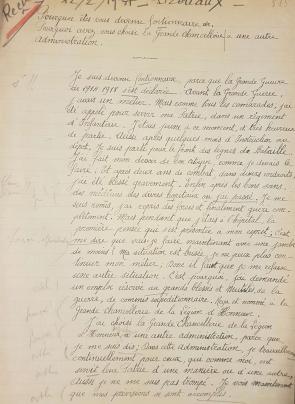 Pourquoi êtes vous devenu fonctionnaire et
Pourquoi avez vous choisi la Grande Chancellerie à une autre
administration.
Je suis devenu fonctionnaire, parce que la Grande Guerre
de 1914 1918 s'est déclarée. Avant la Grande Guerre,
j'avais un métier. Mais comme tous les camarades, j'ai
été appelé pour servir ma Patrie, dans un régiment
d'Infanterie. J'étais jeune à ce moment, et très heureux
de partir. Aussi après quelques mois d'Instruction au
dépôt, je suis parti pour le front des lignes de Bataille.
J'ai fait mon devoir de bon citoyen, comme je devais le
faire. Et après deux ans de combat dans divers endroits,
j'ai été blessé gravement. Enfin après les bons soins
des médecins des divers hopitaux où j'ai passé, je me
suis remis, j'ai repris des forces et finalement guéri com-
plètement. Mais pendant que j'étais à l'hôpital, la
première pensée qui s'est présentée à mon esprit, c'est
me dire que vais-je faire maintenant avec une jambe
de moins? Ma situation est brisée, je ne puis plus con-
tinuer mon métier; Donc il faut que je me refasse
une autre situation. C'est pourquoi j'ai demandé
un emploi réservé au grands blessés et Mutilés de la
guerre, de commis expéditionnaire. Reçu et nommé à la
Grande Chancellerie de la Légion d'Honneur.
J'ai choisi la Grande Chancellerie de la Légion
d'Honneur à une autre administration, parce que
je me suis dis: Dans cette administration, je travaillerai
continuellement pour ceux, qui comme moi, ont
servi leur Patrie d'une manière ou d'une autre.
Aussi je ne me suis pas trompé. Je vois maintenant
que mes prévisions se sont accomplies.